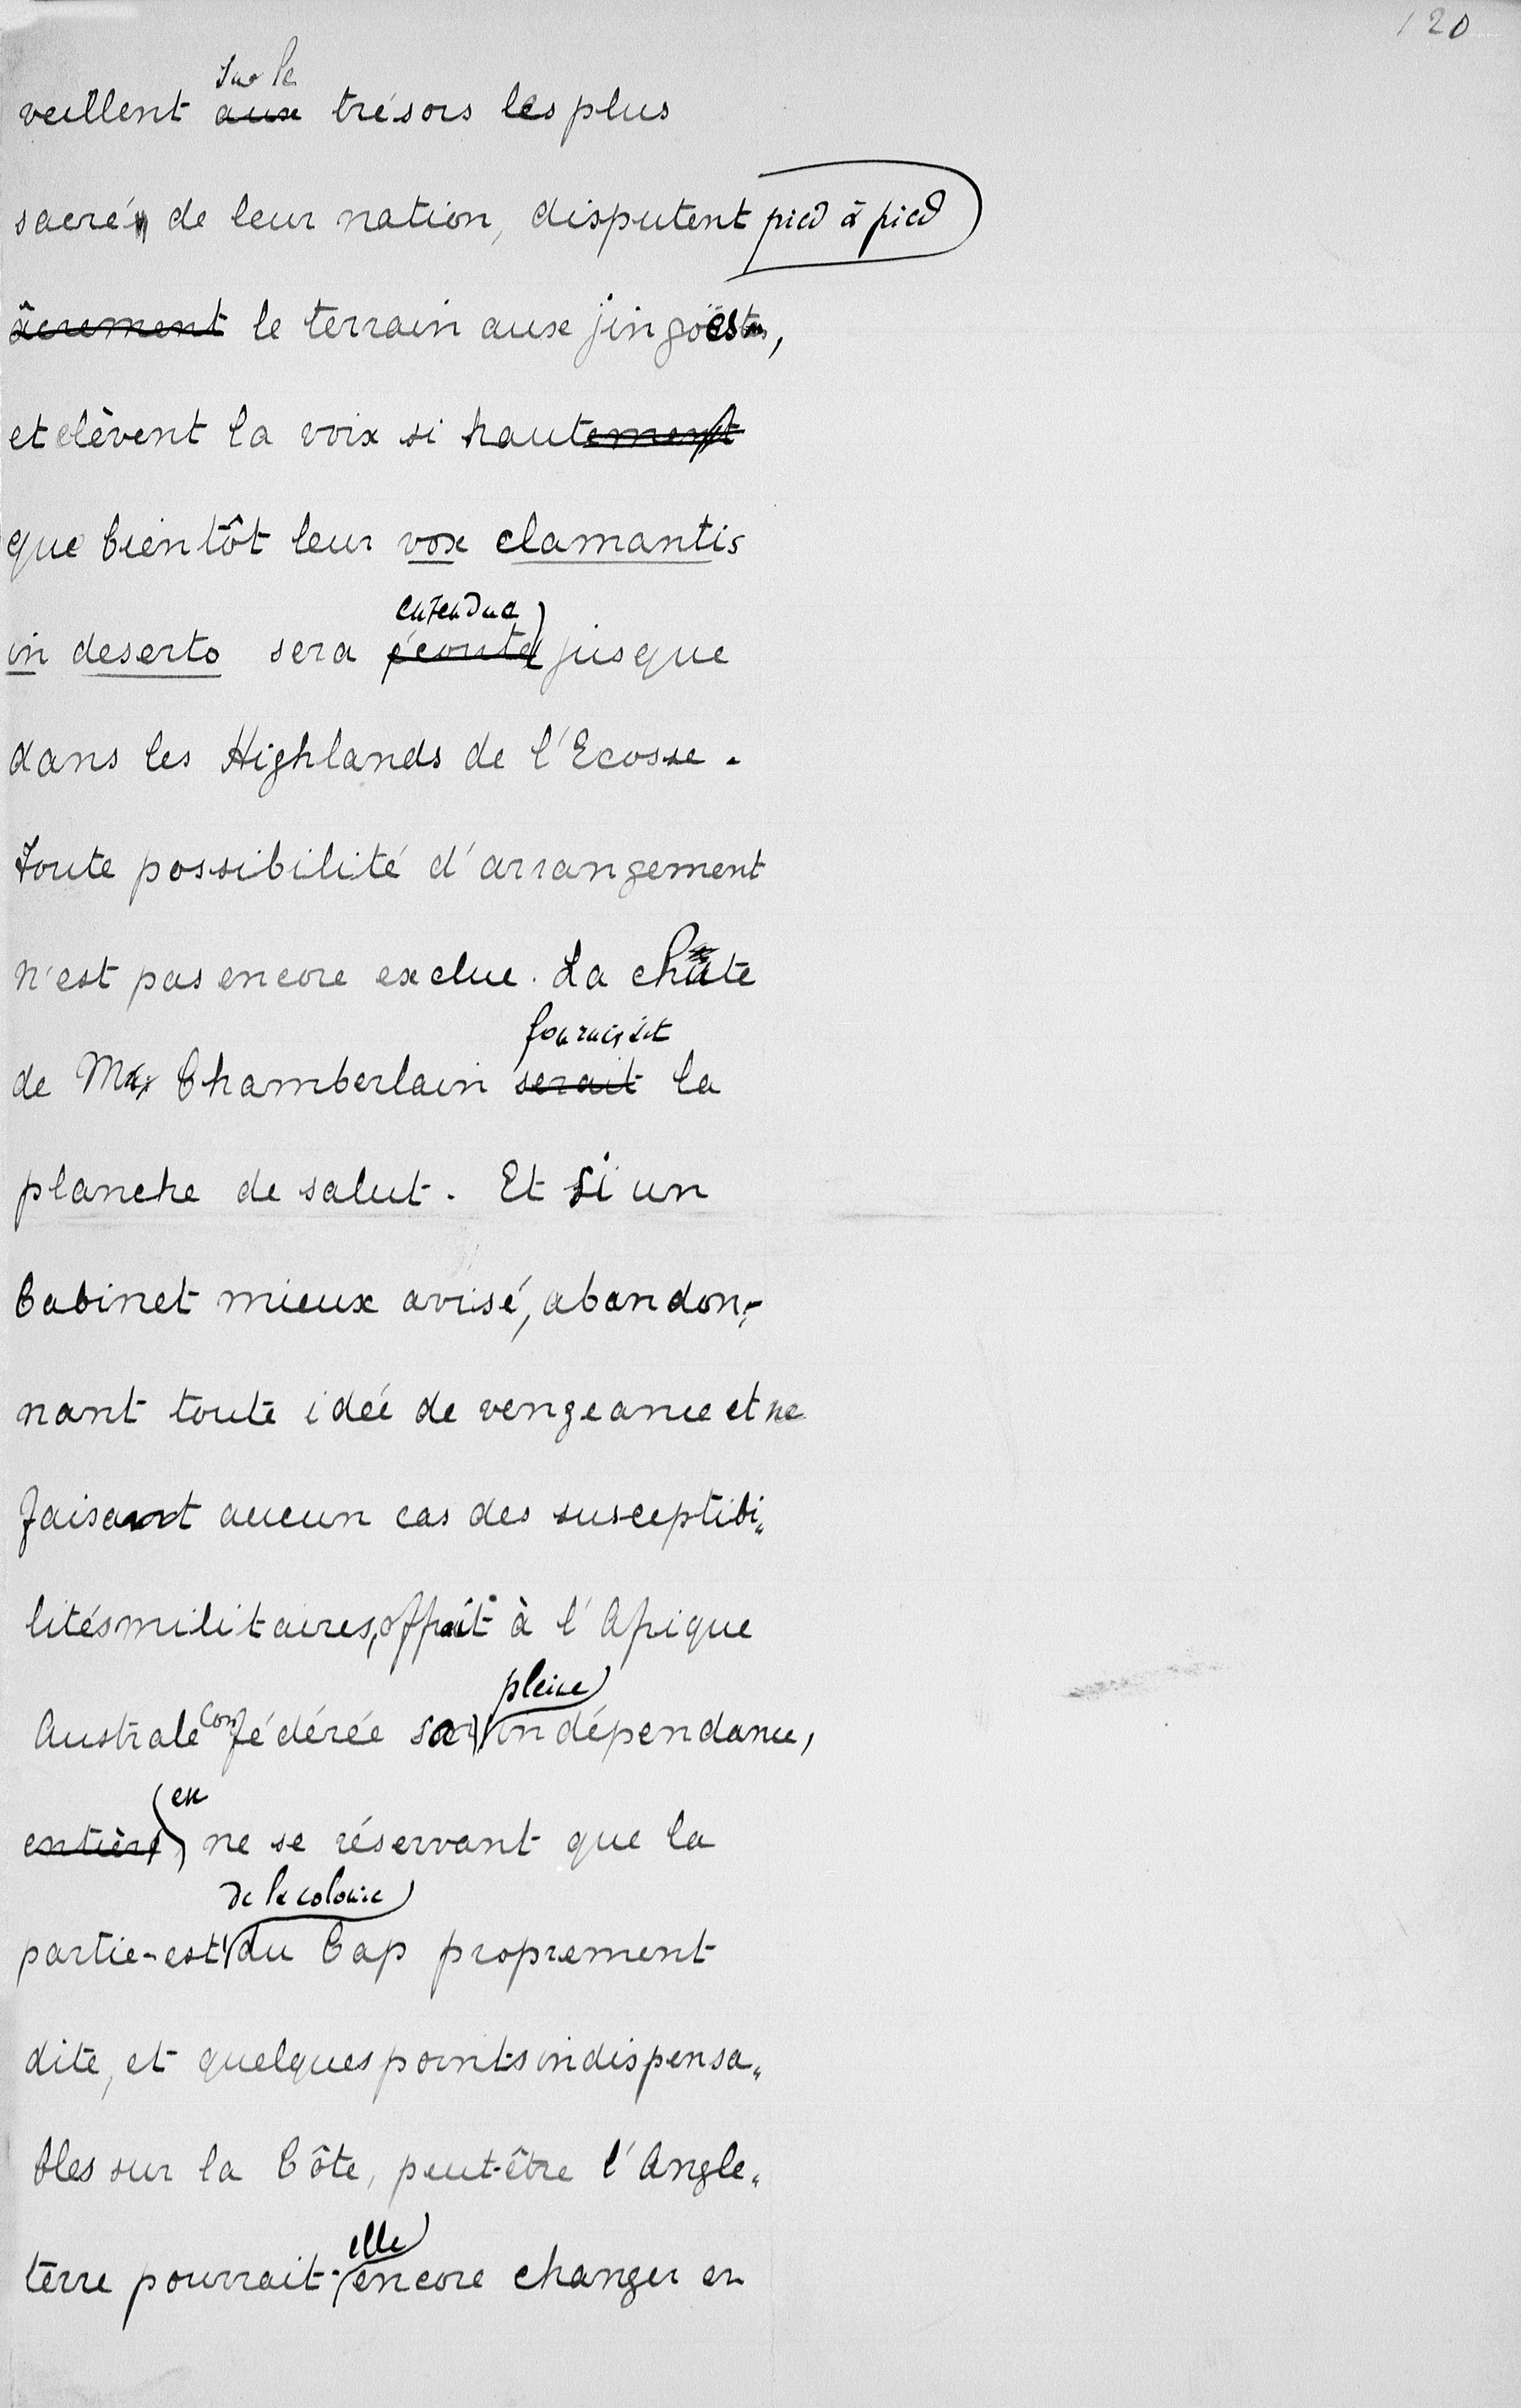 120
sur le
veillent aux trésors les plus
sacrés de leur nation, disputent pied à pied
âcrement le terrain aux jingoïstes,
et elèvent la voix si hautement
que bientôt leur vox clamantis
entendue
in deserto sera écoutée jusque
dans les Highlands de l'Ecosse.
Toute possibilité d'arrangement
n'est pas encore exclue. La chûte
fournirait
de Mr Chamberlain serait la
planche de salut. Et si un
Cabinet mieux avisé, abandon-
nant toute idée de vengeance et ne
faisant aucun cas des susceptibi-
lités militaires, offrait à l'Afrique
pleine
Australe Confédérée son indépendance,
en
entière, ne se réservant que la
de la colonie
partie-est du Cap proprement
dite, et quelques points indispensa-
bles sur la Côte, peut-être l'Angle-
elle
terre pourrait-encore changer en